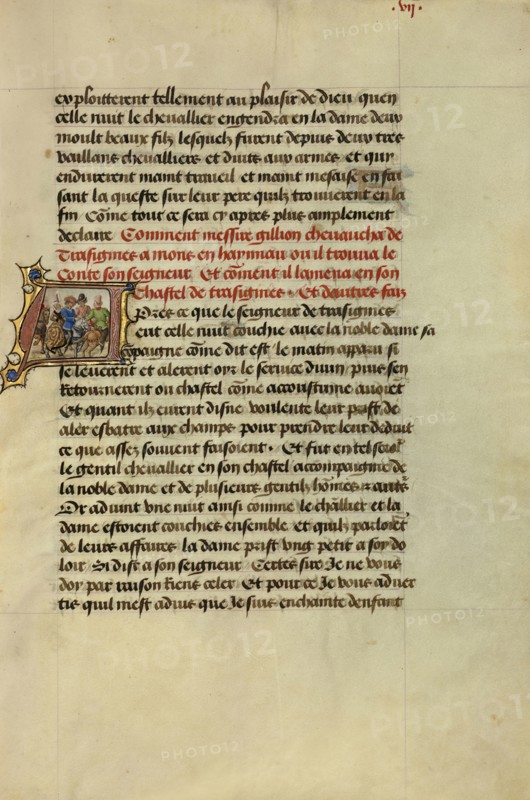 .vij.
exploitterent tellement au plaisir de dieu quen
celle nuit le chevallier engendra en la dame deux
moult beaux filz lesquelz furent depuis deux tres
vaillans chevalliers et duits aux armes et qui
endurerent maint traveil et maint mesaise en fai
sant la queste sur leur pere quilz trouverent en la
fin Cõme tout ce sera cy apres plus amplement
declaire Comment messire gillion chevaucha de
Trasignies a mons en haynnau ou il trouva le
Conte son seigneur Et cõment il lamena en son
chastel de trasignies. Et dautres fais
Apres ce que le seigneur de trasignies
eut celle nuit couchie avec la noble dame sa
cõpaigne cõme dit est le matin apparu si
se leverent et alerent oyr le service divin puis sen
Retournerent ou chastel cõme acoustume
Et quant ilz eurent disne voulente leur prist de
aler esbatre aux champs pour prendre leur deduit
ce que assez souvent faisoient. Et fut en tel
le gentil chevallier en son chastel accompaignie de
la noble dame et de plusieurs gentilz hõmes
Or advint une nuit ainsi comme le chãllier et la
dame estoient couchies ensemble et quilz parloiẽt
de leurs affaires la dame prist ung petit a soy do
loir Si dist a son seigneur Certes sire Je ne vous
doy par raison Riens celer Et pour ce Je vous adver
tis quil mest advis que Je suis enchainte denfant
PHOTO12
PHOTO12
PHOTO12
PHOTO12
PHOTO12